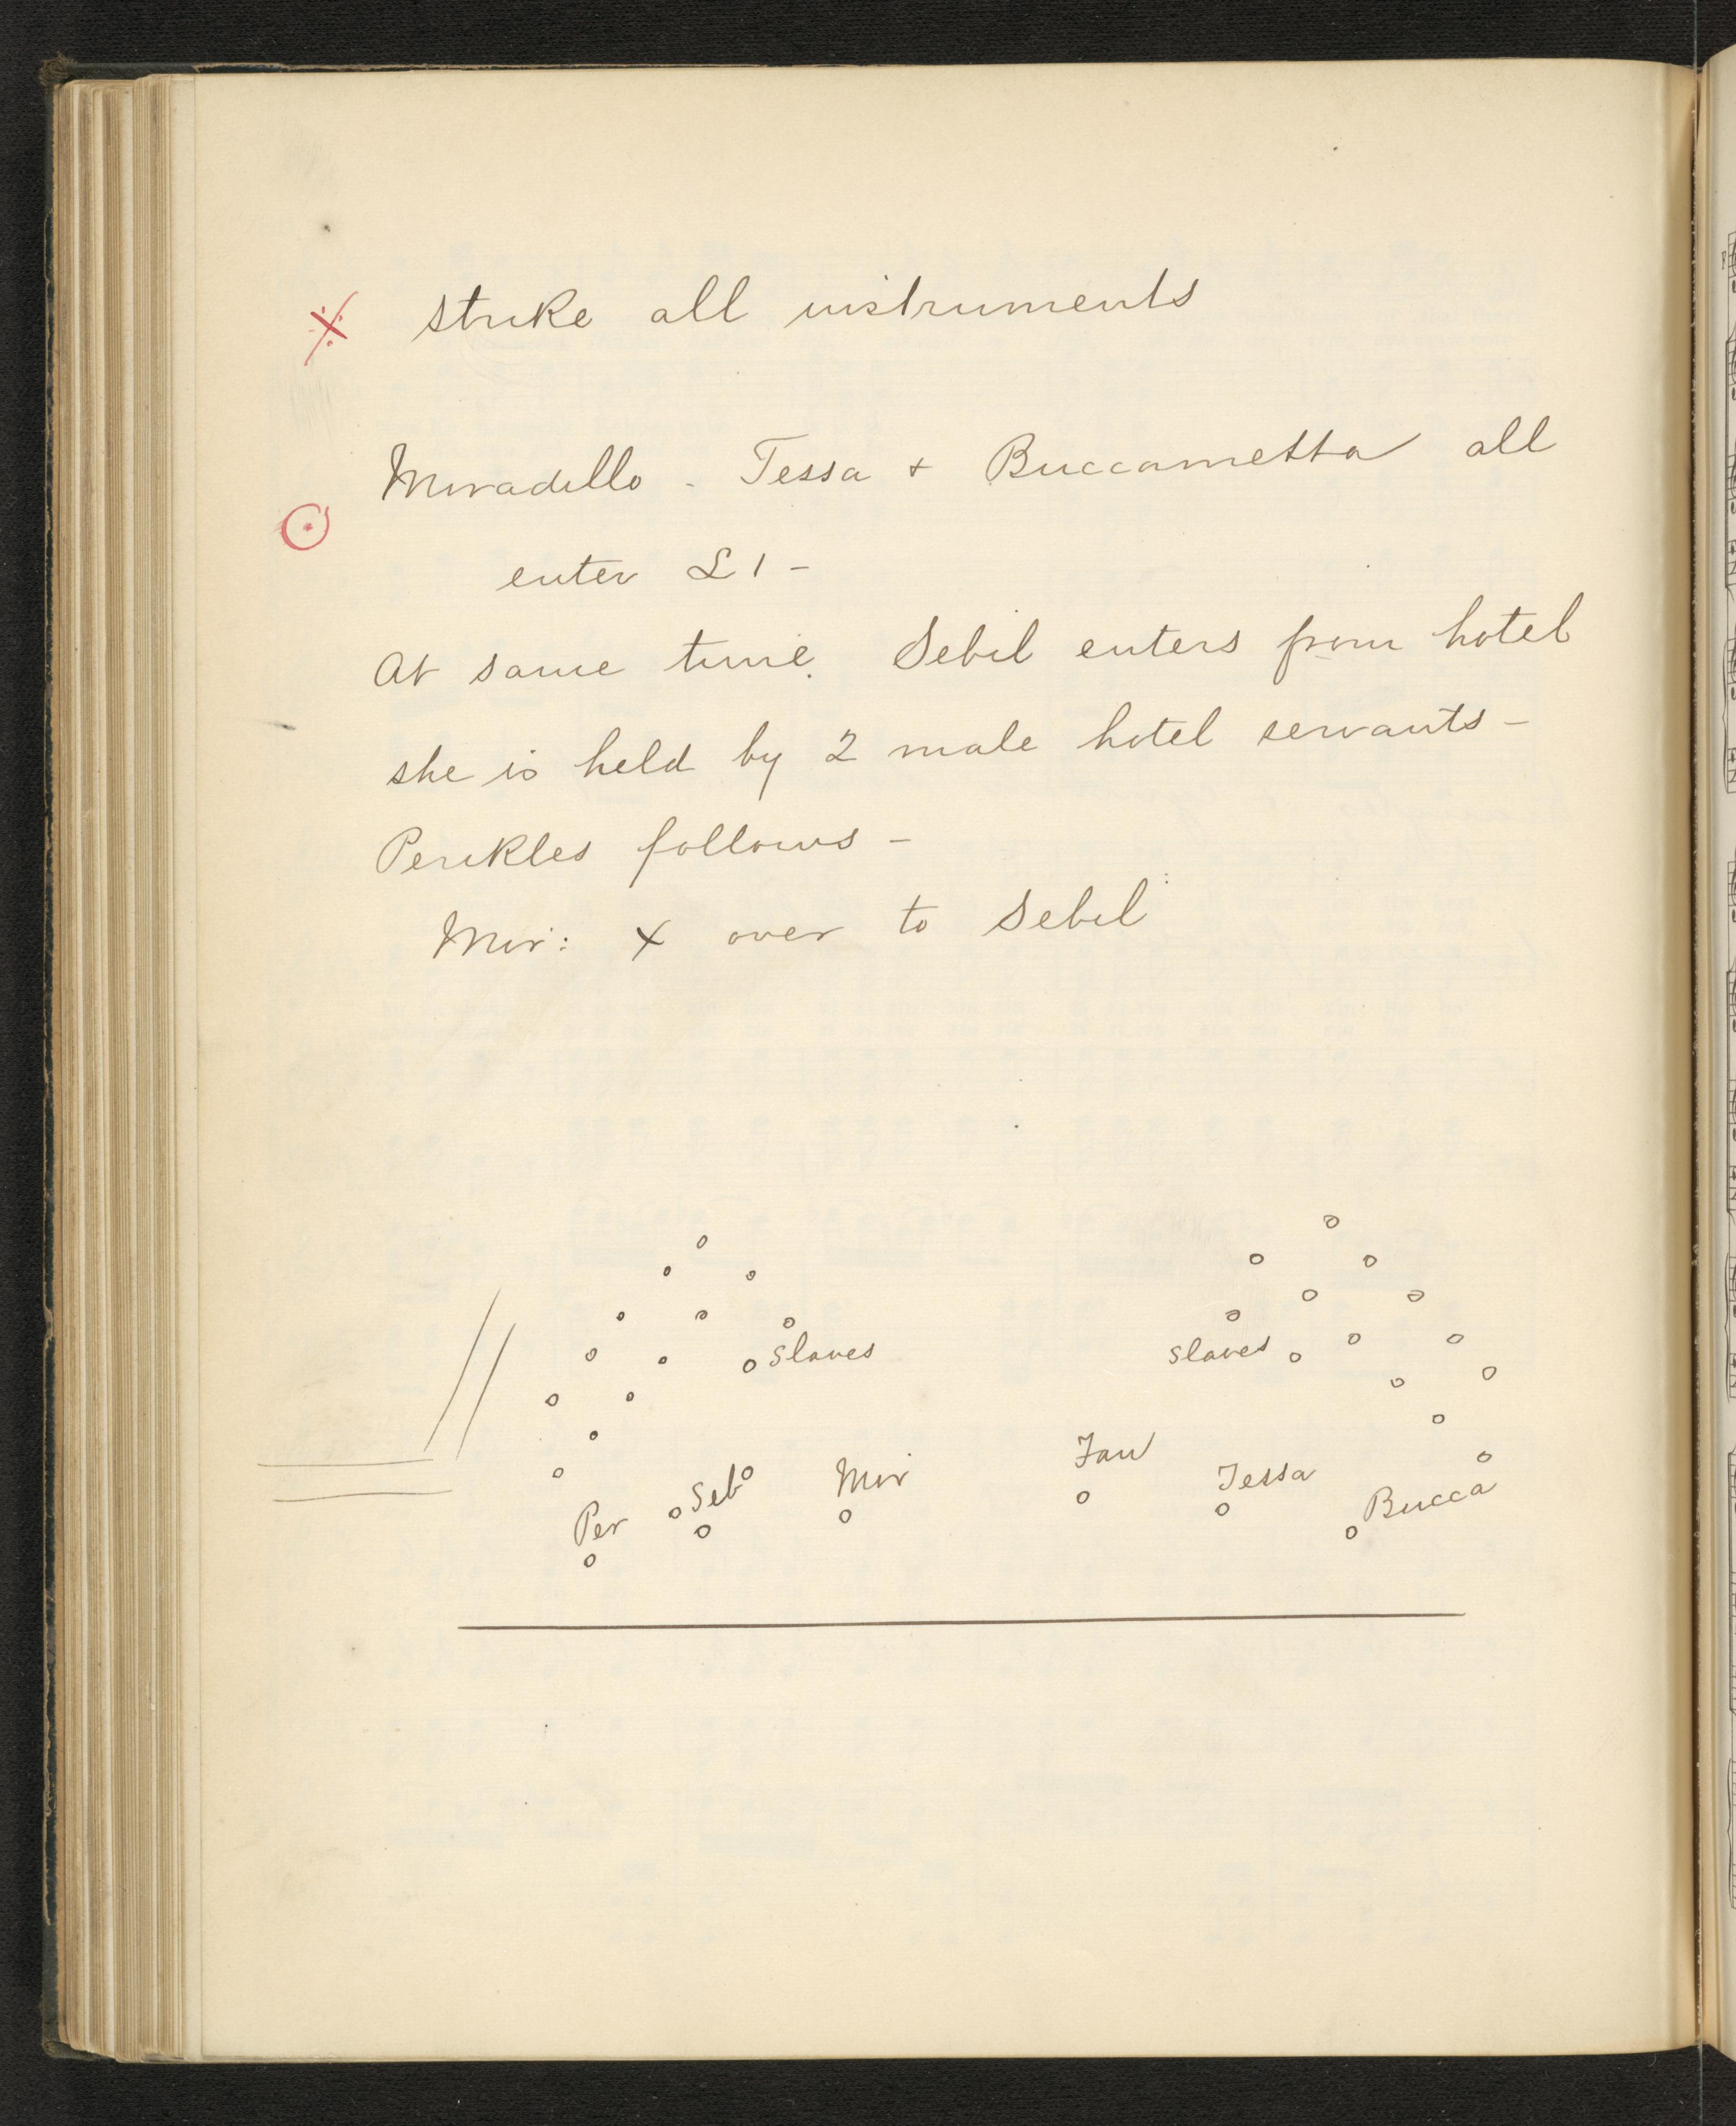 strike all instruments
Miradillo - Tessa + Buccametta all
enter L 1 -
At same time. Sebil enters from hotel
she is held by 2 male hotel servants -
Perikles follows -
Mir: X over to Sebil
slaves
slaves
Per Seb Mir Fan Tessa Bucca